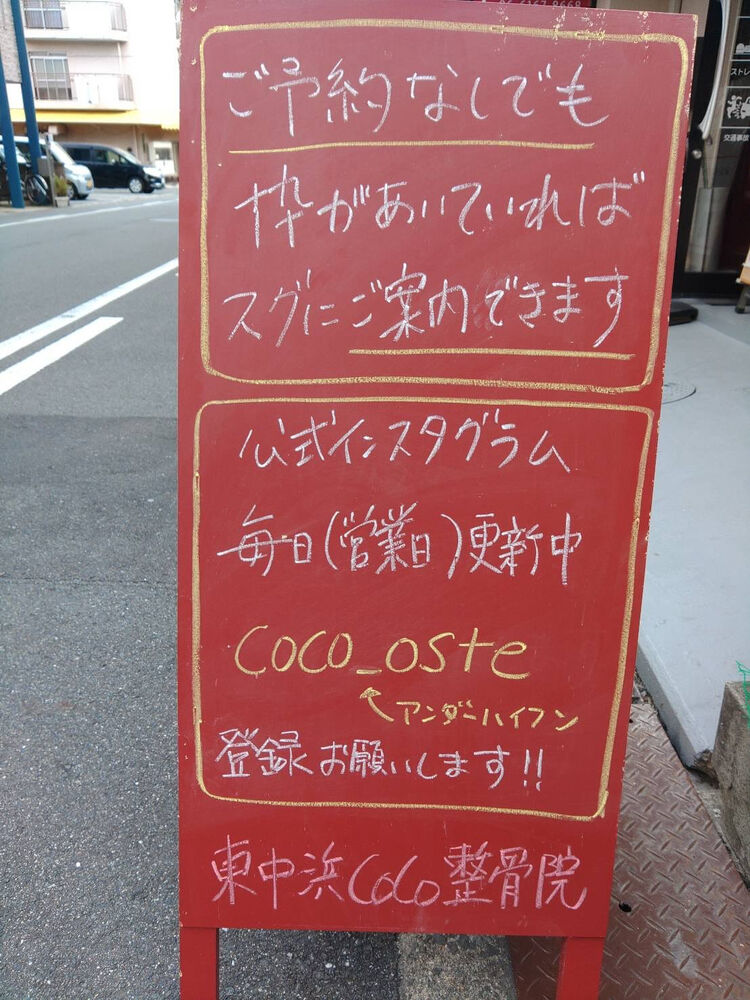 ご予約なしでも
枠があいていれば
スグにご案内できます
公式インスタグラム
毎日(営業日)更新中
coco_oste
↖アンダーハイフン
登録お願いします!!
東中浜CoCo整骨院
ストレ
交通事故